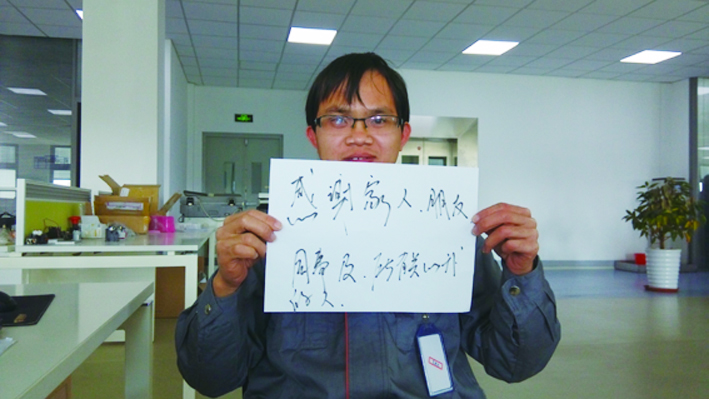 感谢家人、朋友
同事及所有关心我
的人.